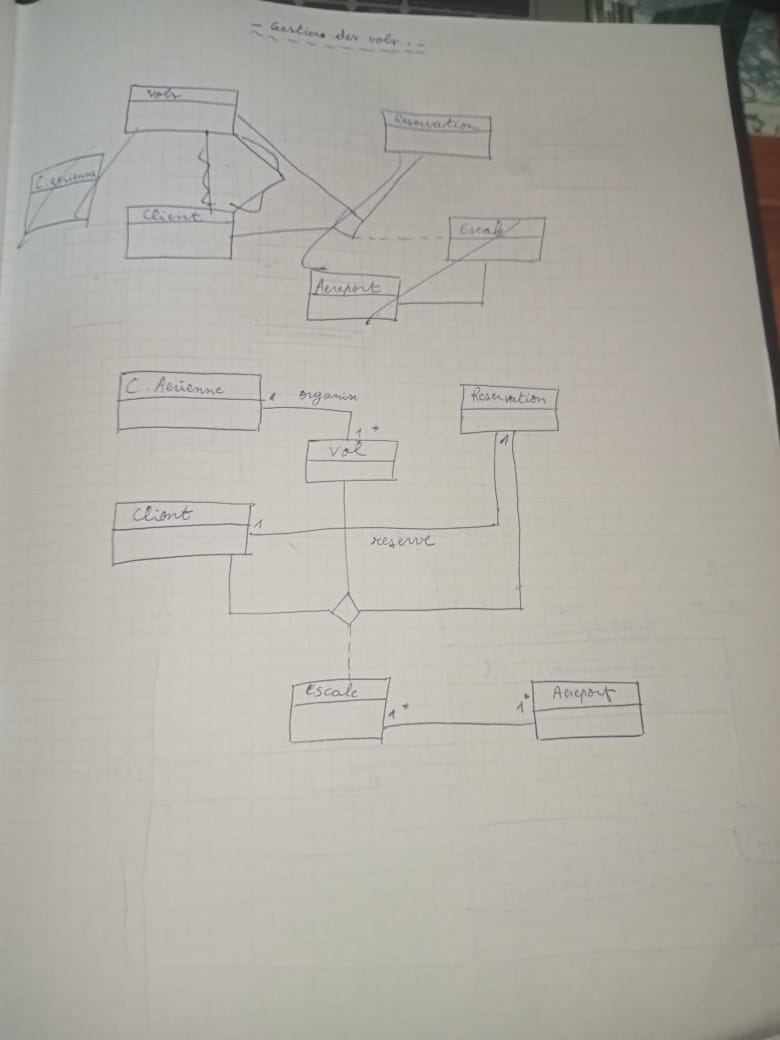 - Gestion des vols. -
Vols
Reservation
C. aerienne
Client
Escale
Aereport
C. Aerienne
1 organise
1 *
Reservation
1
Vol
Client
1
reserve
Escale
1 *
1 *
Aereport